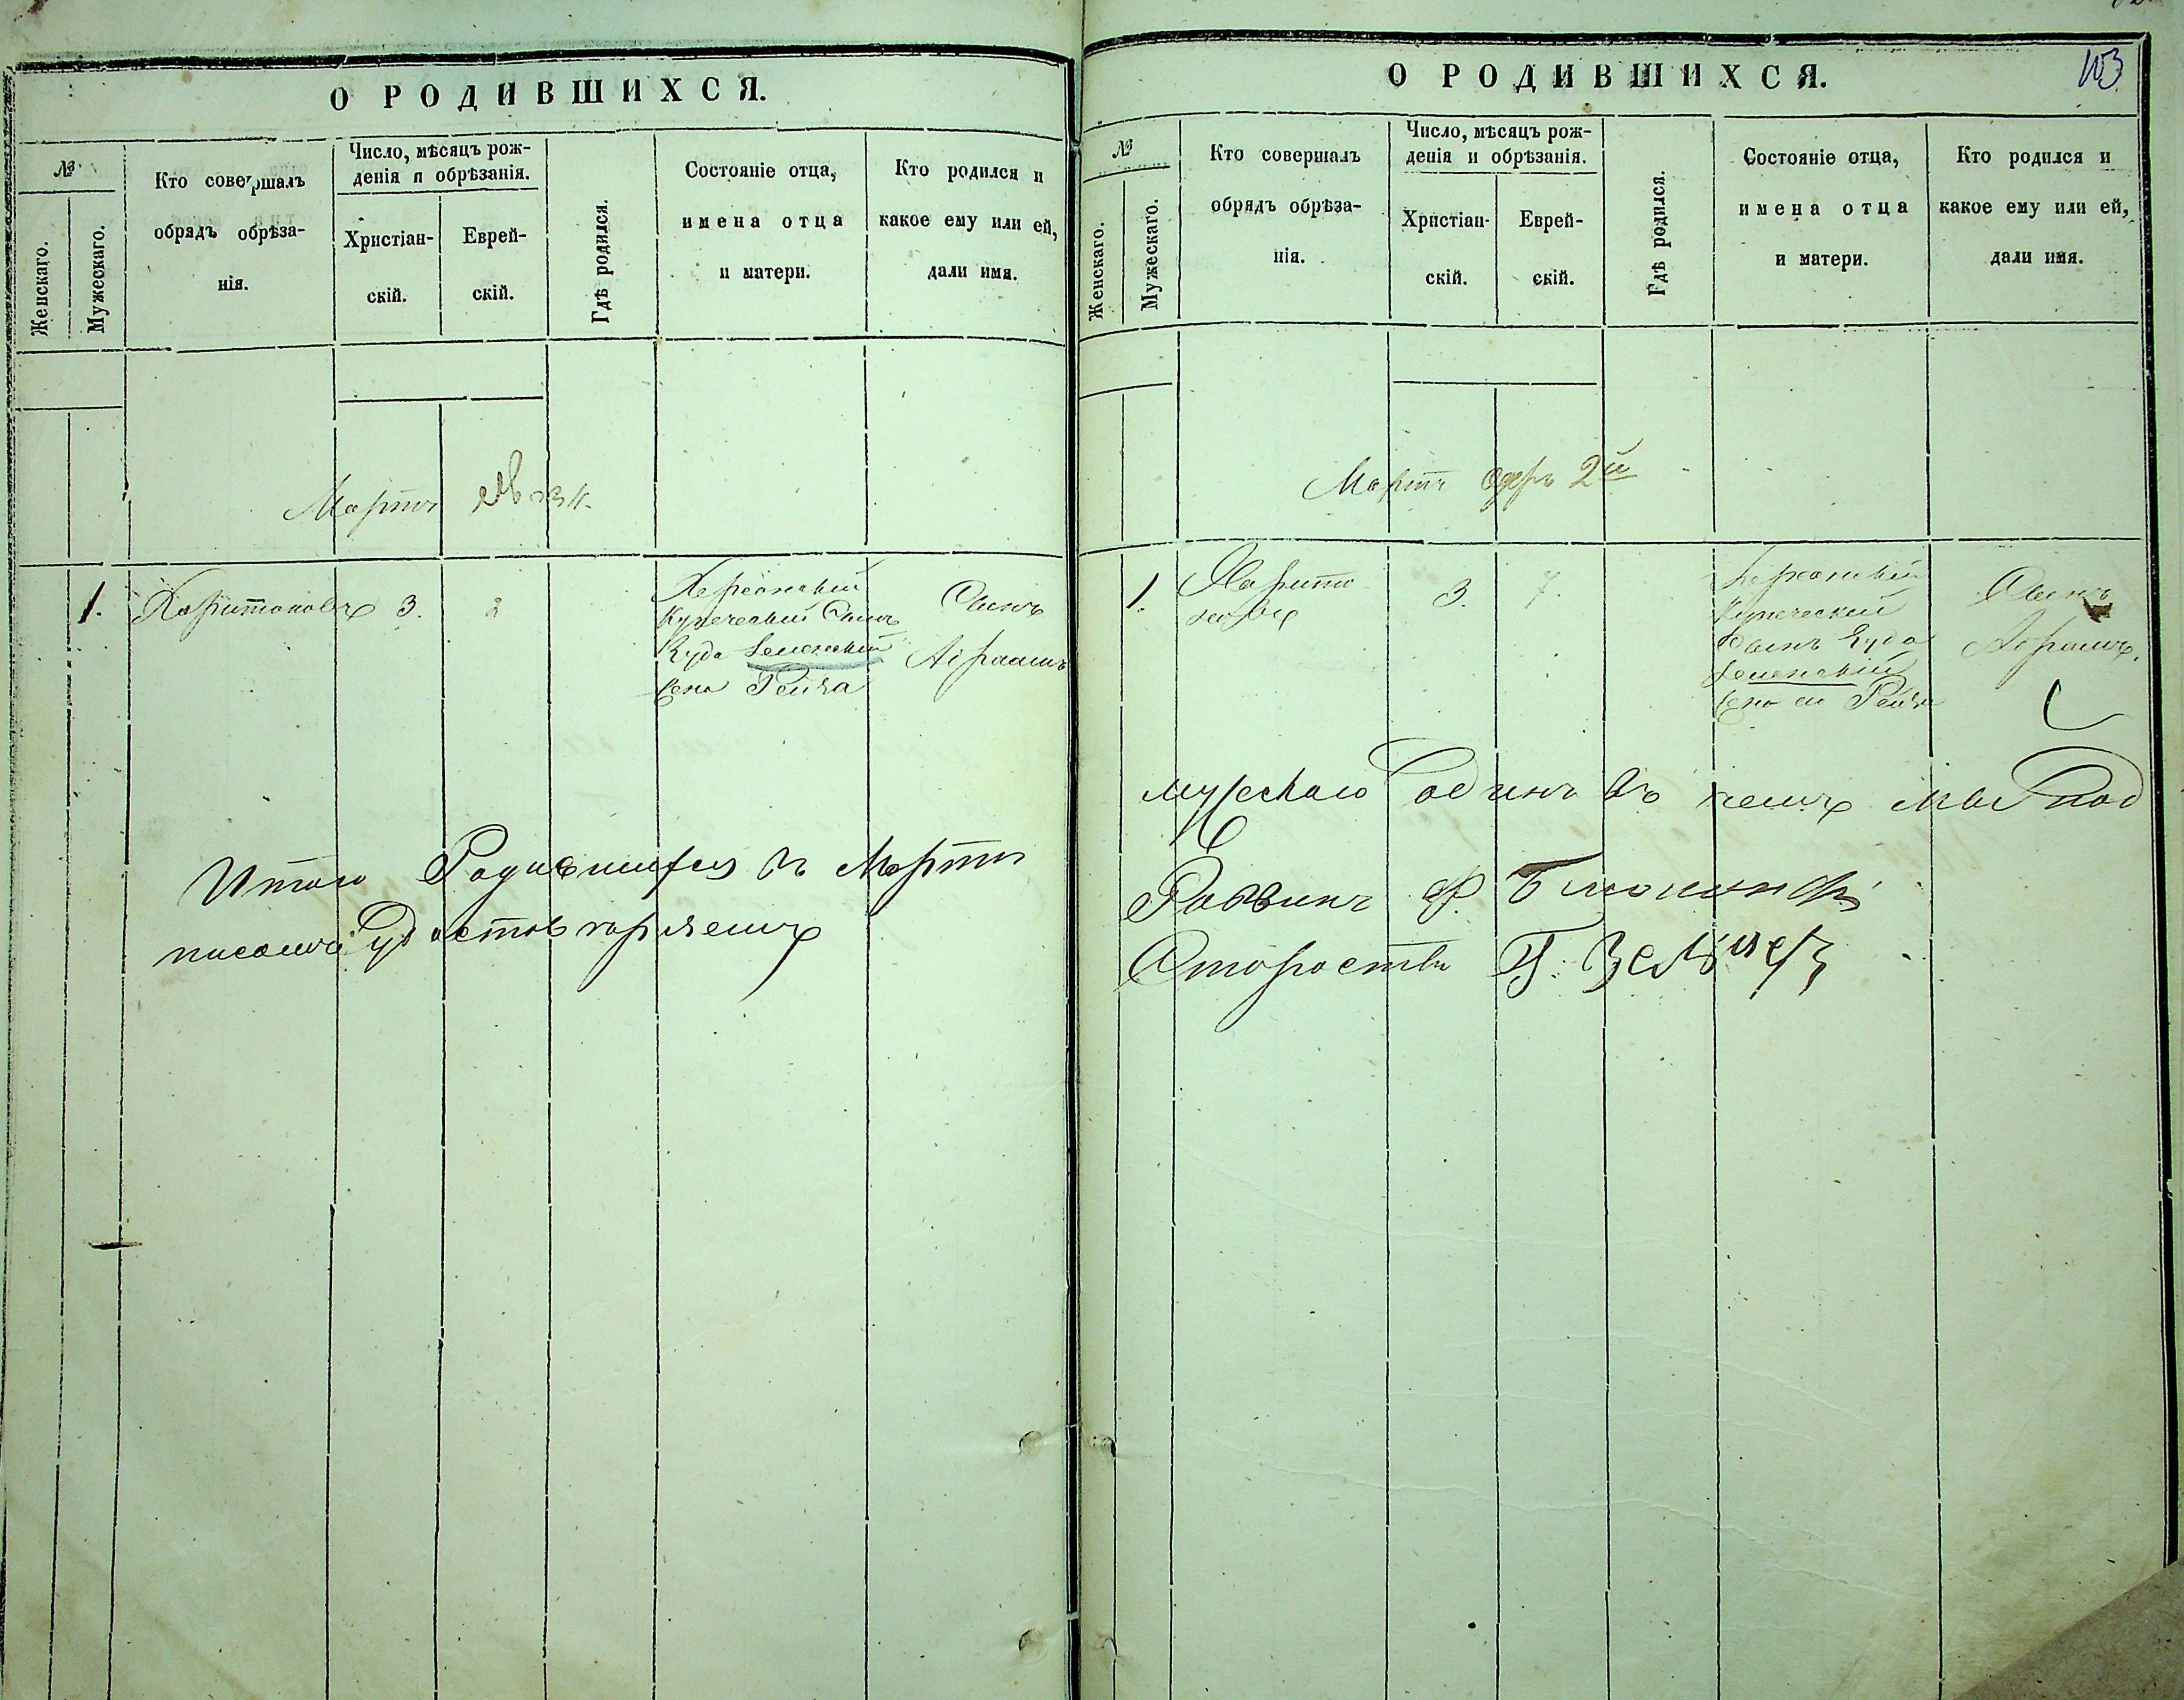 О РОДИВШИХСЯ.
№
Женскаго.
Мужескаго.
Кто совершалъ
обрядъ обрѣза-
нія.
Число, мѣсяцъ рож-
денія и обрѣзанія.
Христіан-
скій.
Еврей-
скій.
Гдѣ родился.
Состояніе отца,
имена отца
и матери.
Кто родился и
какое ему или ей,
дали имя.
Мартъ
1.
Харитоновъ
3.
2
Херсонскій
Купеческій Сынъ
Іуда
Жена Рейза
Сынъ
Абрамъ
Итого Родившихся въ Мартѣ
писомъ удостовѣряемъ
О РОДИВШИХСЯ.
103
№
Женскаго.
Мужескаго.
Кто совершалъ
обрядъ обрѣза-
нія.
Число, мѣсяцъ рож-
денія и обрѣзанія.
Христіан-
скій.
Еврей-
скій.
Гдѣ родился.
Состояніе отца,
имена отца
и матери.
Кто родился и
какое ему или ей,
дали имя.
Мартъ Одеръ 2й
1.
Харито
новъ
3.
7.
Херсонскій
Купеческій
Сынъ Іуда
Жена ею Рейза
Сынъ
Абрамъ.
мужескаго одинъ въ чемъ мы под
Раввинъ Ф.
Староста Г.